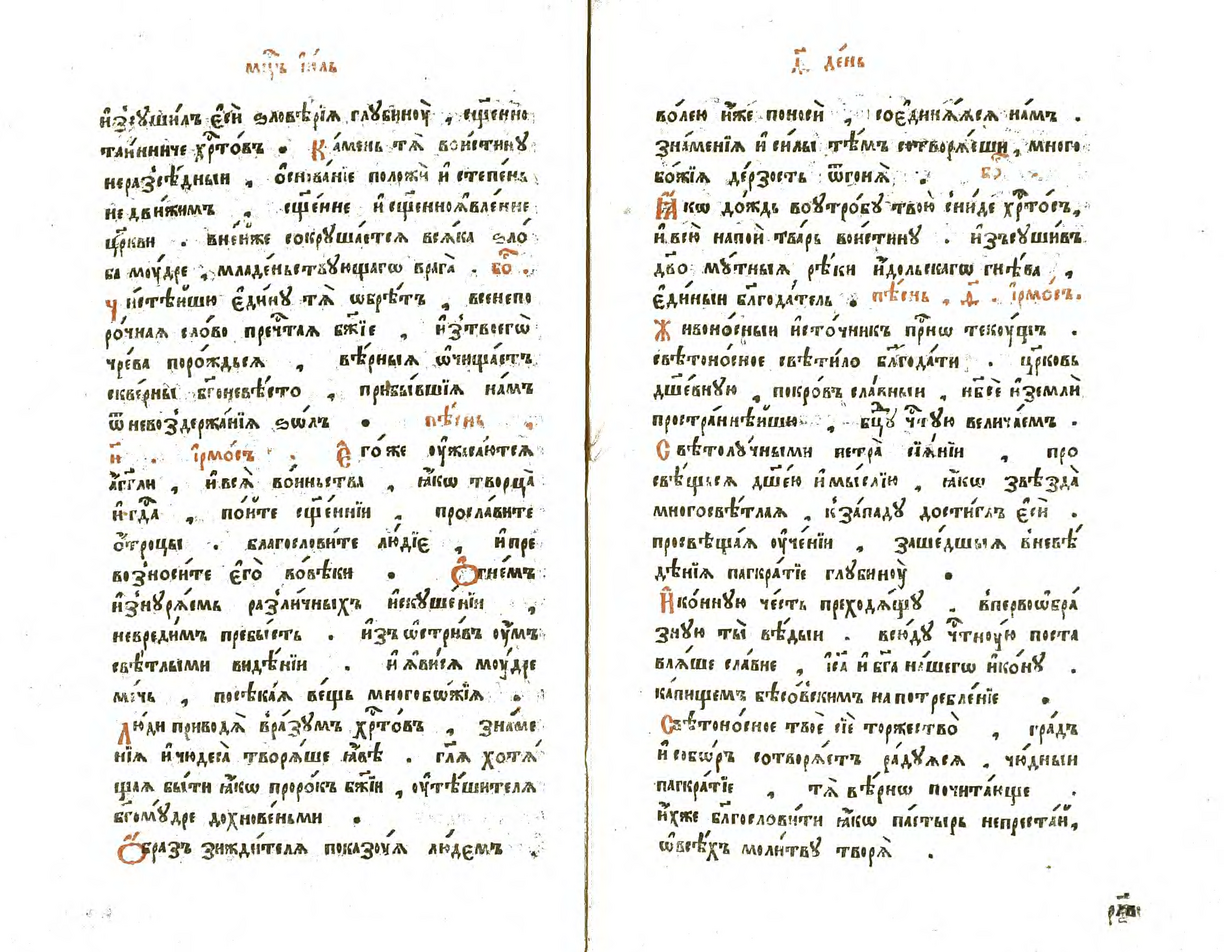 мц҃ъ і҆ю́ль
и҆з̾суши́лъ є҆сѝ ѕловѣ́рїѧ глꙋбинꙋ̀ , сщ҃е́нно
таи́нниче хрⷭ҇то́въ . Ка́мень тѧ̀ вои́стинꙋ
неразсѣ́дныи , ѻ҆снова́нїе положѝ и҆ степе́нь
недви́жимъ , сщ҃е́нне и҆ сщ҃енноꙗвле́нне
цр҃кви . внє́йже сокрꙋша́етсѧ всѧ́ка ѕло́
ба мꙋ́дре , младе́ньствꙋющагѡ врага̀ . бо҃ .
Чистѣ́йшꙋю є҆ди́нꙋ тѧ̀ ѡ҆брѣ́тъ , всенепо
ро́чнаѧ сло́во прⷱ҇таѧ бж҃їе , и҆з̾твоегѡ̀
чре́ва поро́ждьсѧ , вѣ́рныѧ ѡ҆чища́етъ
скве́рны бг҃оневѣ́сто , прибы́вшїѧ на́мъ
ѿ невоздержа́нїѧ ѕѡ́лъ . пѣ́снь ,
и҃ . і҆рмо́съ . Є҆го́же ᲂу҆жаса́ютсѧ
а҆́гг҃ли , и҆ всѧ̀ во́иньства , ꙗ҆́кѡ творца̀
и҆ гдⷭ҇а , по́ите сщ҃е́ннїи , просла́вите
ѻ҆́троцы . благослови́те лю́дїє , и҆ пре
возноси́те є҆го̀ во вѣ́ки . Ѻ҆гне́мъ
и҆знꙋрѧ́емь разли́чныхъ и҆скꙋше́нїи ,
невреди́мъ пребы́сть . и҆зъѡстри́въ ᲂу҆́мъ
свѣ́тлыми видѣ́нїи . и҆ ꙗ҆ви́сѧ мꙋ́дре
ме́чь , посѣка́ѧ ве́щь многобо́жїѧ .
Лю́ди приводѧ̀ в̾ра́зꙋмъ хрⷭ҇то́въ , зна́ме
нїѧ и҆ чюдеса̀ творѧ́ше ꙗ҆́вѣ . гл҃ѧ хотѧ́
щаѧ бы́ти ꙗ҆́кѡ проро́къ бж҃їи , ᲂу҆тѣ́шителѧ
бг҃омꙋ́дре дохнове́ньми .
Ѻ҆́бразъ зижди́телѧ показꙋ́ѧ лю́демъ .
д҃ де́нь
во́лею и҆́же поноси̇̀ , соєдинѧ́ѧсѧ на́мъ .
зна́менїѧ и҆ си́лы тѣ́мъ сотворѧ́еши , много
бо́жїѧ де́рзость ѿгонѧ̀ . бо҃ .
Ꙗ҆́кѡ до́ждь во ᲂу҆тро́бꙋ твою̀ сни́де хрⷭ҇то́съ ,
и҆ всю̀ напоѝ тва́рь вои́стинꙋ . и҆зъсꙋши́въ
дв҃о мꙋ́тныѧ рѣ́ки и҆́дольскагѡ гнѣ́ва ,
є҆ди́ныи блг҃ода́тель . пѣ́снь , д҃ . і҆рмо́съ .
Живоно́сныи и҆сто́чникъ при́снѡ текꙋ́щъ .
свѣтоно́сное свѣти́ло блг҃ода́ти . цр҃ковь
дш҃е́внꙋю , покро́въ сла́вныи , нб҃сѐ и҆ землѝ
простра́ннѣишꙋю , бцⷣꙋ чⷭ҇тꙋю велича́емъ .
Свѣтолꙋ́чными петра̀ сїѧ́нїи , про
свѣ́щьсѧ дш҃е́ю и҆ мы́слїю , ꙗ҆́кѡ звѣзда̀
многосвѣ́тлаѧ , к̾за́падꙋ дости́глъ є҆сѝ .
просвѣща́ѧ ᲂу҆че́нїи , заше́дшыѧ в̾невѣ́
дѣ́нїѧ пагкра́тїе глꙋбинꙋ̀ .
И҆ко́ннꙋю че́сть преходѧ́щꙋ , в̾первоѡбра́
знꙋю ты̀ вѣ́дыи . всю́дꙋ чⷭ҇тнꙋ́ю поста
влѧ́ше сла́вне , і҆с҃а и҆ бг҃а на́шегѡ и҆ко́нꙋ .
ка́пищемъ бѣсо́вскимъ на потребле́нїе .
Свѣтоно́сное твоѐ сїѐ торжество̀ , гра́дъ
и҆ собо́ръ сотворѧ́етъ ра́дꙋѧсѧ , чю́дныи
пагкра́тїе , тѧ̀ вѣ́рнѡ почита́юще .
и҆́хже блг҃ослови́ти ꙗ҆́кѡ па́стырь непреста́й ,
ѡ҆ всѣ́хъ моли́твꙋ творѧ̀ .